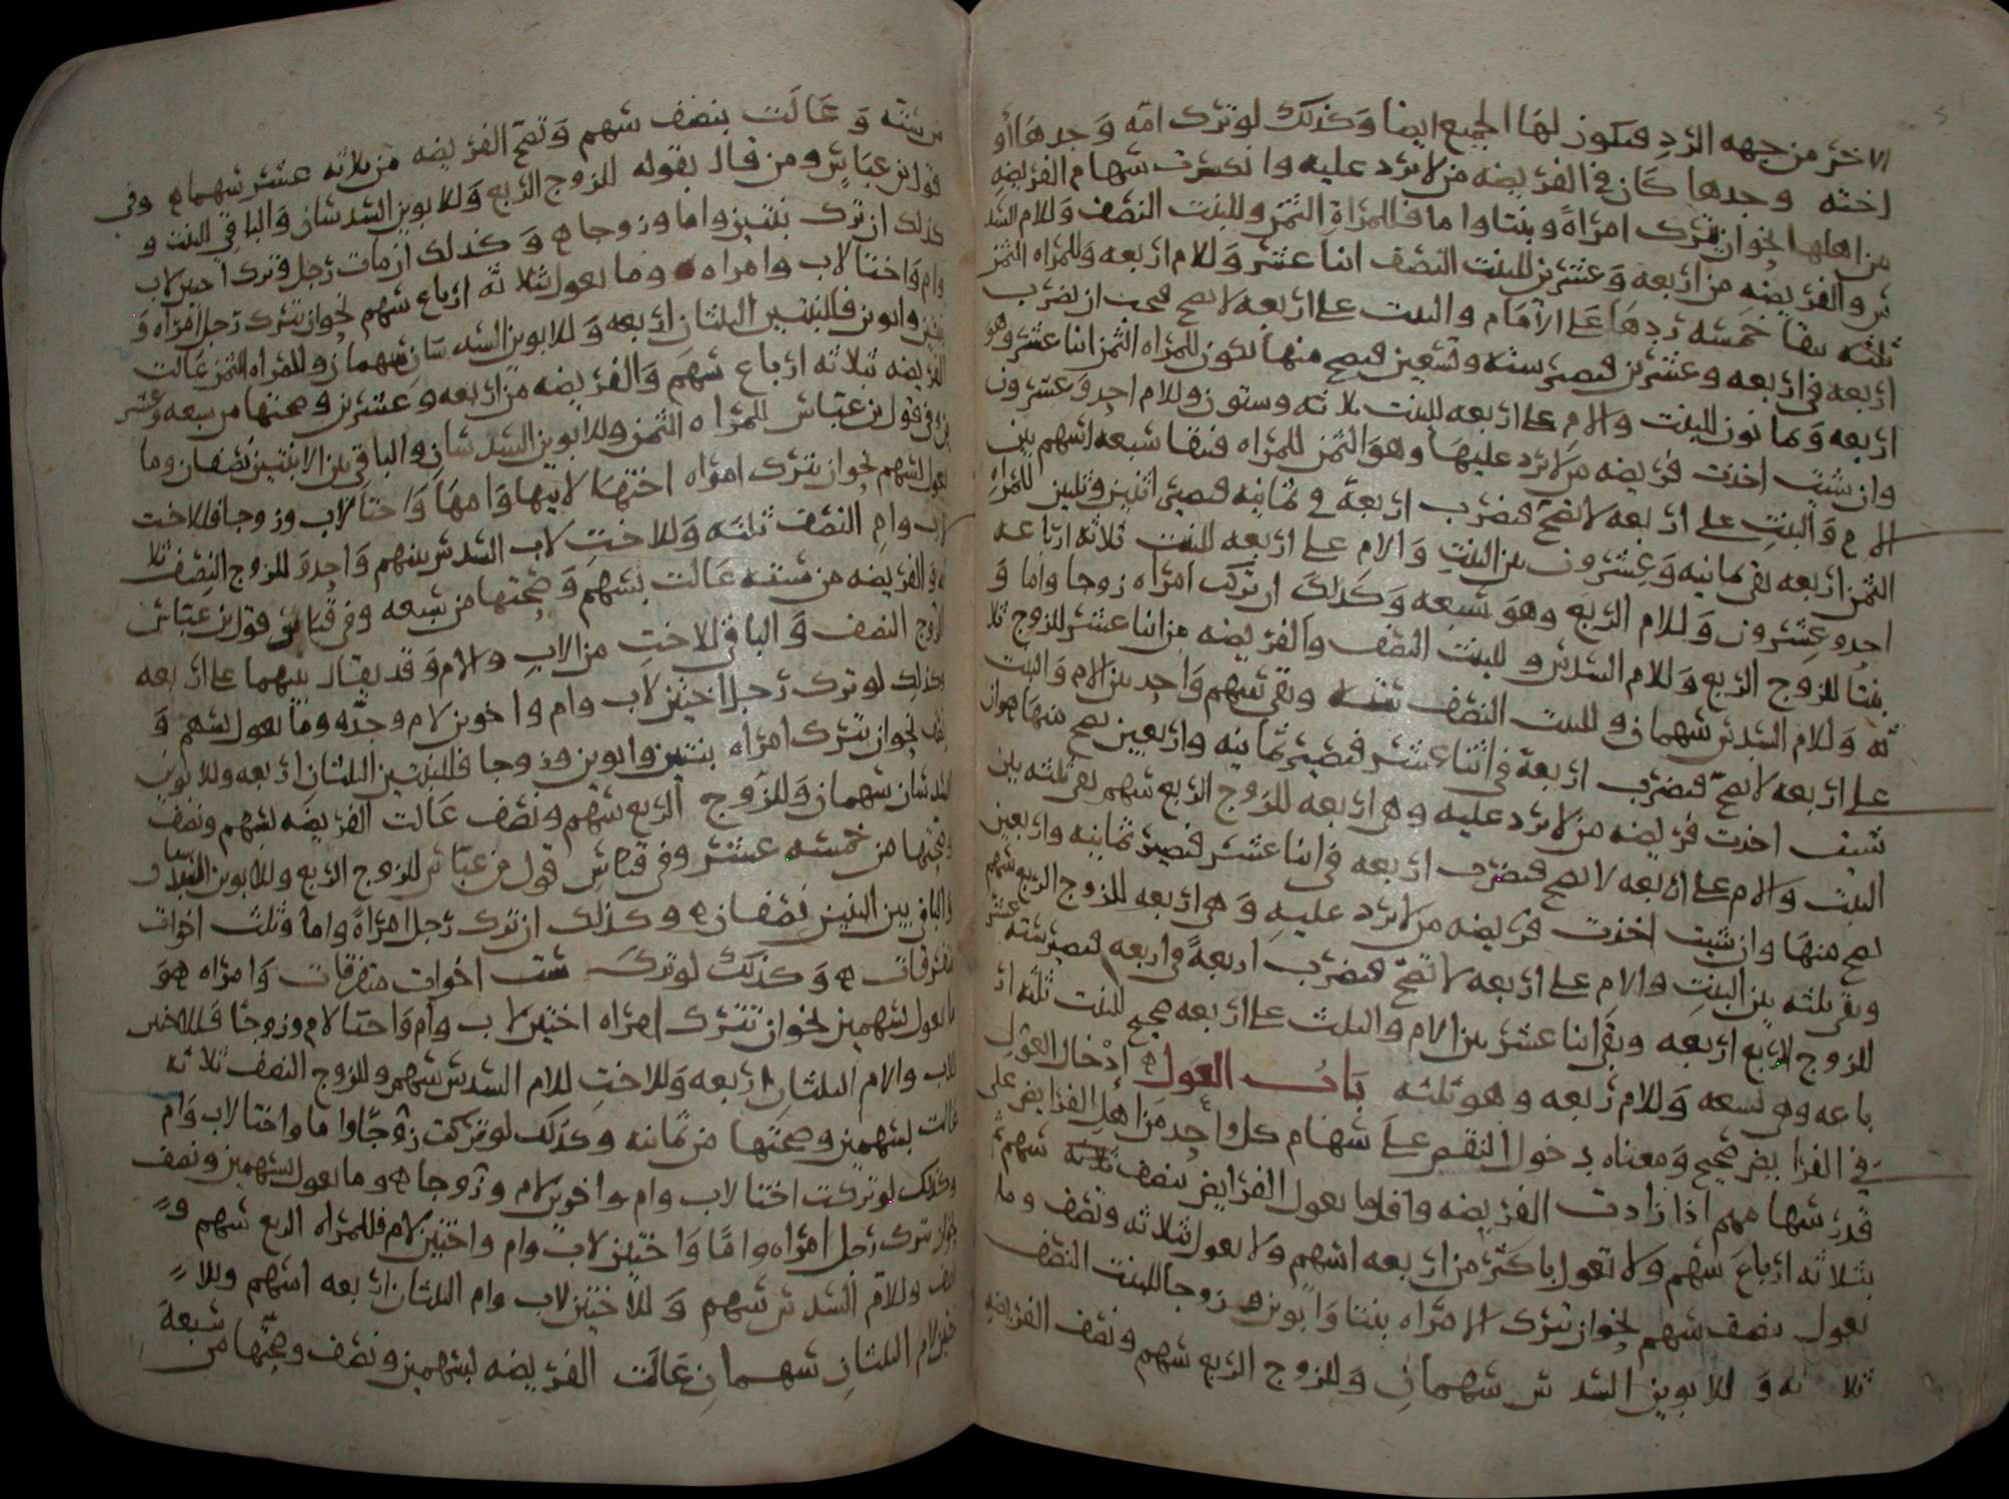 الاخرى من جهه الرد فيكون لها الجميع ايضا وكذلك لو ترك امه وجدها او
اخته وحدها كان في الفريضه من لا يرد عليه وانكسرت سهام الفريضه
من اهلها نحو ان يترك امراة وبنتا واما فللمراة الثمن وللبنت النصف وللام السد
س والفريضه من اربعه وعشرين للبنت النصف اثنا عشر وللام اربعه وللمراه الثمن
ثلثه يبقا خمسه ردها على الام والبنت على اربعه لا يصح فيجب ان يضرب
اربعه في اربعه وعشرين فيصير سته وتسعين فيصح منها يكون للمراه الثمن اثنا عشر وهو
اربعه وثمانون للبنت والام على اربعه للبنت ثلاثه وستون وللام احد وعشرون
وان شيت اخذت فريضه من لا يرد عليها وهو الثمن للمراه فيبقا سبعه اسهم بين
الام والبنت على اربعه لا تصح فيضرب اربعة في ثمانيه فيصير اثنين وثلثين للمراه
الثمن اربعه بقي ثمانيه وعشرون بين البنت والام على اربعه للبنت ثلاثه ارباعه
احد وعشرون وللام الربع وهو سبعه وكذلك ان تركت امراه زوجا واما و
بنتا للزوج الربع وللام السدس وللبنت النصف والفريضه من اثنا عشر للزوج ثلا
ثه وللام السدس سهمان وللبنت النصف سته وبقي سهم واحد بين الام والبنت
على اربعه لا تصح فيضرب اربعة في اثنا عشر فيصير ثمانيه واربعين يصح منها هو ان
شيت اخذت فريضه من لا يرد عليه وهي اربعه للزوج الربع سهم بقي ثلثه بين
البنت والام على اربعه لا يصح فيضرب اربعه في اثنا عشر فيصير ثمانيه واربعين
يصح منها وان شيت اخذت فريضه من لا يرد عليه وهي اربعه للزوج الربع سهم
وبقي ثلثه بين البنت والام على اربعه لا تصح فيضرب اربعة في اربعه فيصير سته عشر
للزوج الربع اربعه وبقي اثنا عشر بين الام والبنت على اربعه صحيح للبنت ثلثه ار
باعه وهي تسعه وللام ربعه وهو ثلثه باب العول ادخال العول
في الفرايض صحيح ومعناه دخول النقص على سهام كل واحد من اهل الفرايض على
قدر سهامهم اذا زادت الفريضه واقل ما يعول الفرايض بنصف سهم ثم
بثلاثه ارباع سهم ولا تعول باكثر من اربعه اسهم ولا يعول بثلاثه ونصف وما
يعول بنصف سهم نحو ان تترك الامراه بنتا وابوين وزوجا للبنت النصف
ثلاثه وللابوين السدسان سهمان وللزوج الربع سهم ونصف الفريضه
من سته وعالت بنصف سهم وتصح الفريضه من ثلاثه عشر سهما وفي
قول بن عباس ومن قال بقوله للزوج الربع وللابوين السدسان والباقي للبنت و
كذلك ان ترك بنتين واما وزوجا وكذلك ان مات رجل وترك اختين لاب
وام واختا لاب وامراه وما يعول بثلاثه ارباع سهم نحو ان يترك رجل امراه و
بنتين وابوين فللبنتين الثلثان اربعه وللابوين السدسان سهمان وللمراه الثمن عالت
الفريضه بثلاثه ارباع سهم والفريضه من اربعه وعشرين وصحتها من سبعه وعشر
ين وفي قول بن عباس للمراه الثمن وللابوين السدسان والباقي بين الابنتين نصفان وما
يعول بسهم نحو ان يترك امراه اختها لابيها وامها واختا لاب وزوجا فللاخت
لاب وام النصف ثلثه وللاخت لاب السدس سهم واحد وللزوج النصف ثلا
ثه والفريضه من سته عالت بسهم وصحتها من سبعه وفي قياس قول بن عباس
للزوج النصف والباقي للاخت من الاب والام وقد يقال بينهما على اربعه
وكذلك لو ترك رجل اختين لاب وام واخوين لام وجده وما يعول بسهم و
نصف نحو ان تترك امراه بنتين وابوين وزوجا فللبنتين الثلثان اربعه وللابوين
السدسان سهمان وللزوج الربع سهم ونصف عالت الفريضه بسهم ونصف
وصحتها من خمسه عشر وفي قياس قول بن عباس للزوج الربع وللابوين السدسان و
الباقي بين البنتين نصفان وكذلك ان ترك رجل امراة واما وثلث اخوات
متفرقات وكذلك لو ترك ست اخوات متفرقات وامراه هو
ما يعول بسهمين نحو ان تترك امراه اختين لاب وام واختا لام وزوجا فللاختين
للاب والام الثلثان اربعه وللاخت للام السدس سهم وللزوج النصف ثلاثه
عالت بسهمين وصحتها من ثمانيه وكذلك لو تركت زوجا واما واختا لاب وام
وكذلك لو تركت اختا لاب وام واخوين لام وزوجا وما يعول بسهمين ونصف
نحو ان ترك رجل امراه واما واختين لاب وام واختين لام فللمراه الربع سهم و
نصف وللام السدس سهم وللاختين لاب وام الثلثان اربعه اسهم وللا
ختين لام الثلثان سهمان عالت الفريضه بسهمين ونصف وصحتها من سبعة